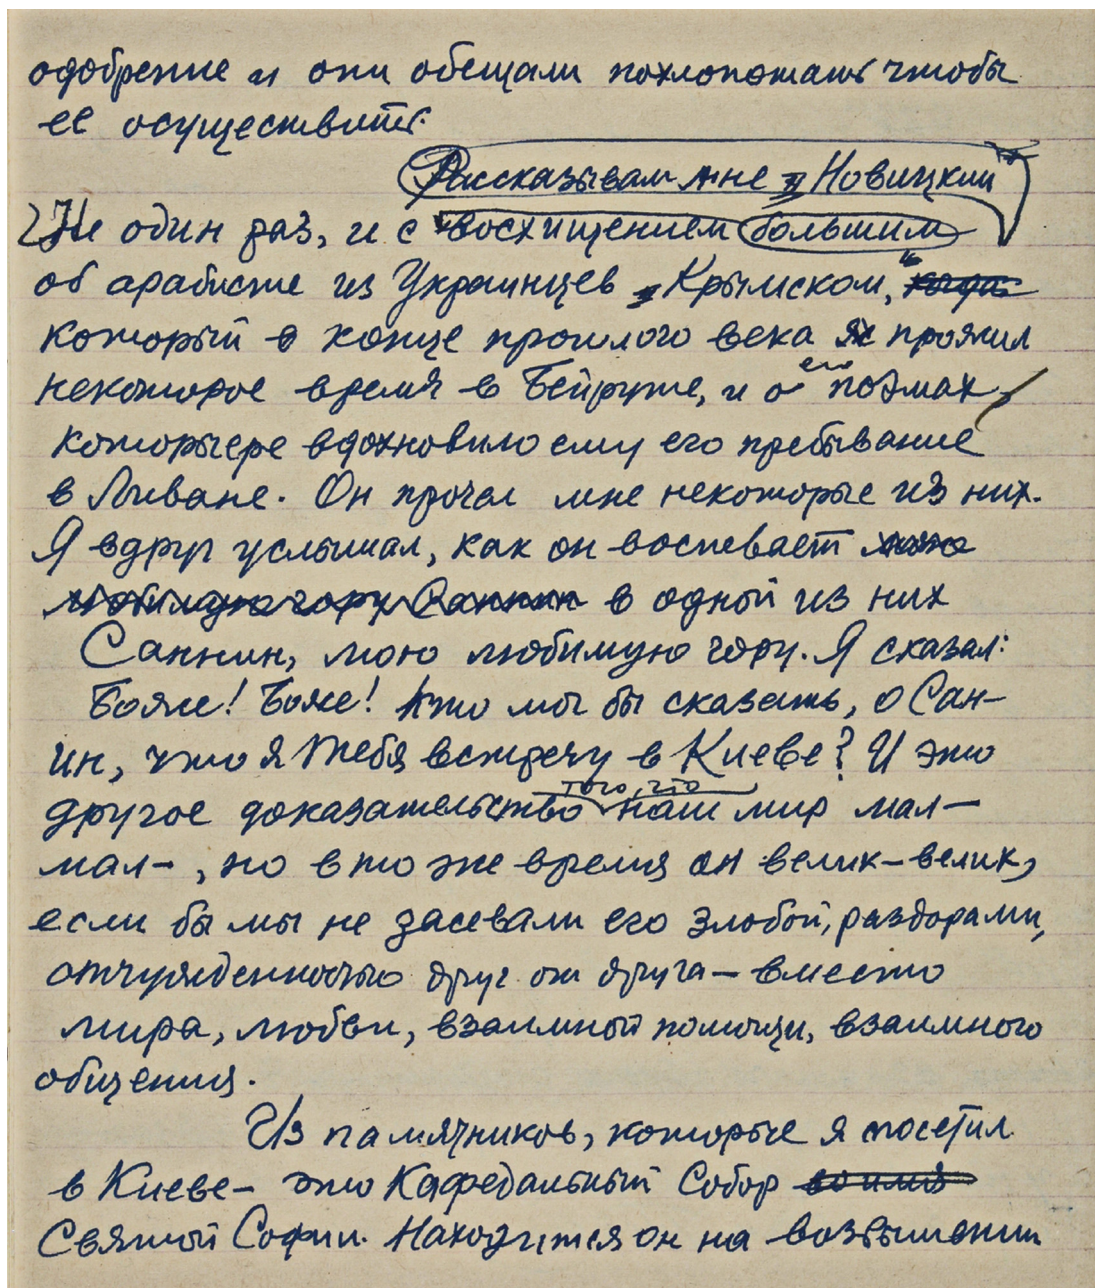 одобрение и они обещали похлопотать чтобы
ее осуществить.
Рассказывал мне Новицкий
Не один раз, и с восхищением большим
об арабисте из Украинцев Крымском,
который в конце прошлого века прожил
некоторое время в Бейруте, и о его поэмах,
которые вдохновило ему его пребывание
в Ливане. Он прочел мне некоторые из них.
Я вдруг услышал, как он воспевает мою
любимую гору Саннин в одной из них
Саннин, мою любимую гору. Я сказал:
Боже! Боже! Кто мог бы сказать, о Сан-
ин, что я тебя встречу в Киеве? И это
другое доказательство того, что наш мир мал-
мал-, но в то же время он велик-велик,
если бы мы не засевали его злобой, раздорами,
отчужденностью друг от друга - вместо
мира, любви, взаимной помощи, взаимного
общения.
Из памятников, которые я посетил
в Киеве - это Кафедальный Собор во имя
Святой Софии. Находится он на возвышении